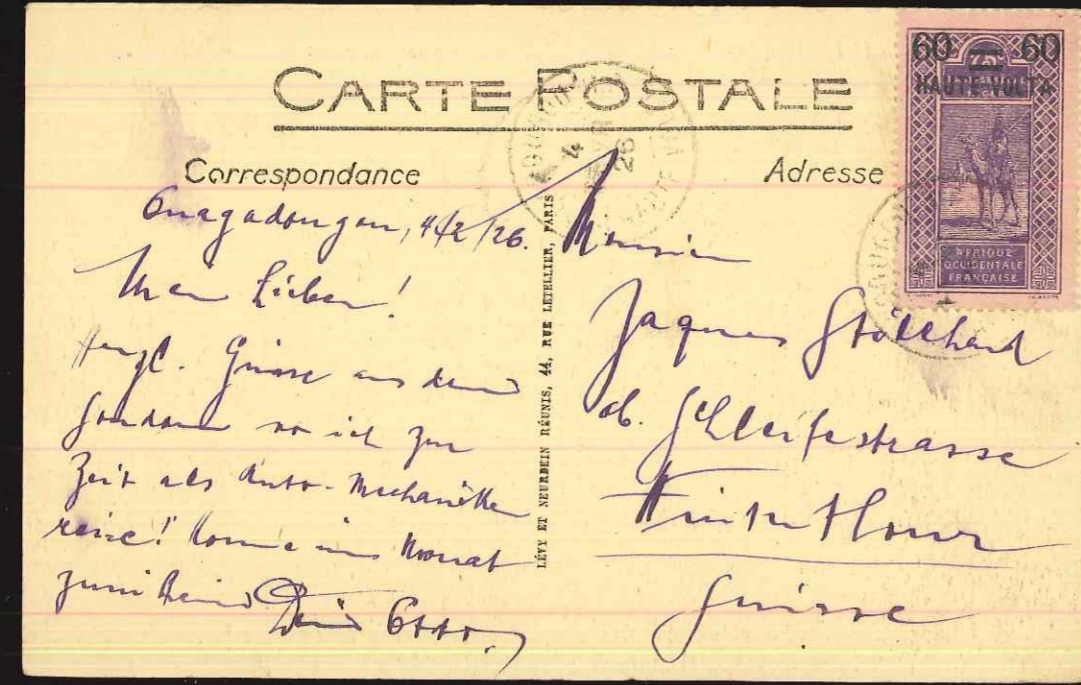 CARTE POSTALE
Correspondance
Adresse
Ouagadougou, 4/2/26.
Mein Lieber!
Herzl. Grüsse aus dem
Soudan wo ich zur
Zeit als Auto-Mechaniker
reise! Komme im Monat
Juni heim Dein Otto
LÉVY ET NEURDEIN RÉUNIS, 44, RUE LETELLIER, PARIS
Monsieur
Jaques
ob. Schleifestrasse
Winterthour
Suisse
60 60
HAUTE-VOLTA
AFRIQUE
OCCIDENTALE
FRANÇAISE
4
26